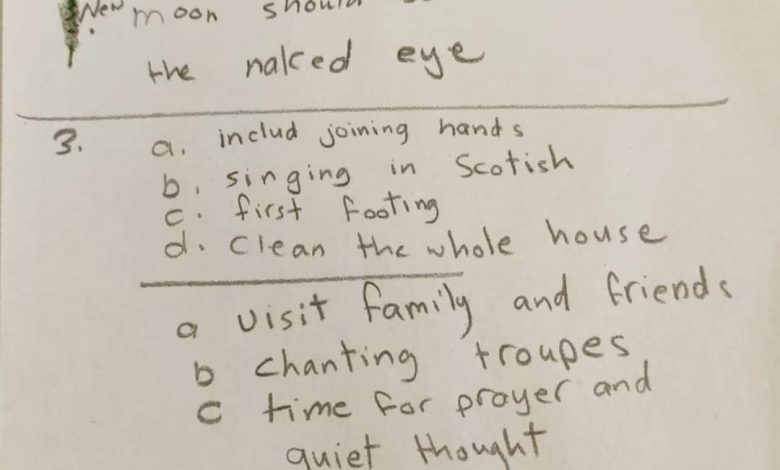 New moon should
the naked eye
3. a. includ joining hands
b. singing in Scotish
c. first footing
d. Clean the whole house
a visit family and friends
b chanting troupes
c time for prayer and
quiet thought